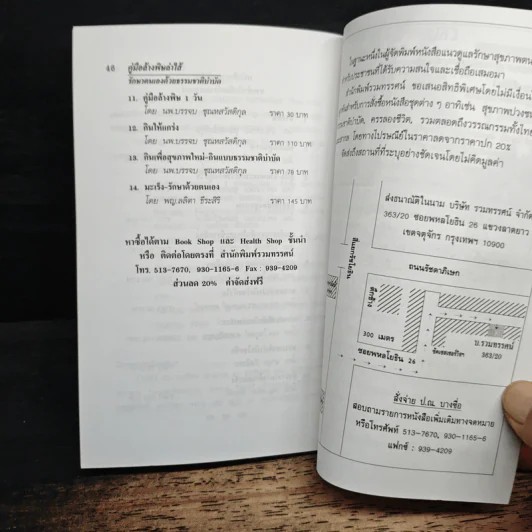 48 คู่มือล้างพิษลำไส้
รักษาตนเองด้วยธรรมชาติบำบัด
11. คู่มือล้างพิษ 1 วัน
โดย นพ.บรรจบ ชุณหสวัสดิกุล ราคา 30 บาท
12. กินให้แกร่ง
โดย นพ.บรรจบ ชุณหสวัสดิกุล ราคา 110 บาท
13. กินเพื่อสุขภาพใหม่-กินแบบธรรมชาติบำบัด
โดย นพ.บรรจบ ชุณหสวัสดิกุล ราคา 78 บาท
14. มะเร็ง-รักษาด้วยตนเอง
โดย พญ.ลลิตา ธีระสิริ ราคา 145 บาท
หาซื้อได้ตาม Book Shop และ Health Shop ชั้นนำ
หรือ ติดต่อโดยตรงที่ สำนักพิมพ์รวมทรรศน์
โทร. 513-7670, 930-1165-6 Fax : 939-4209
ส่วนลด 20% ค่าจัดส่งฟรี
ในฐานะหนึ่งในผู้จัดพิมพ์หนังสือแนวดูแลรักษาสุขภาพตน
ประชาชนที่ได้รับความสนใจและเชื่อถือเสมอมา
สำนักพิมพ์รวมทรรศน์ ขอเสนอสิทธิพิเศษโดยไม่มีเงื่อน
สำหรับการสั่งซื้อหนังสือชุดต่าง ๆ อาทิเช่น สุขภาพปวงชน
บำบัด, ครรลองชีวิต, รวมตลอดถึงวรรณกรรมทั้งไทย
โดยทางไปรษณีย์ในราคาลดจากราคาปก 20%
จัดส่งถึงสถานที่ที่ระบุอย่างชัดเจนโดยไม่คิดมูลค่า
ส่งธนาณัติในนาม บริษัท รวมทรรศน์ จำกัด
363/20 ซอยพหลโยธิน 26 แขวงลาดยาว
เขตจตุจักร กรุงเทพฯ 10900
ถนนรัชดาภิเษก
ถนนพหลโยธิน
ตึกช้าง
300 เมตร
บ.รวมทรรศน์
363/20
ซอยพหลโยธิน 26
สั่งจ่าย ป.ณ. บางซื่อ
สอบถามรายการหนังสือเพิ่มเติมทางจดหมาย
หรือโทรศัพท์ 513-7670, 930-1165-6
แฟกซ์ : 939-4209